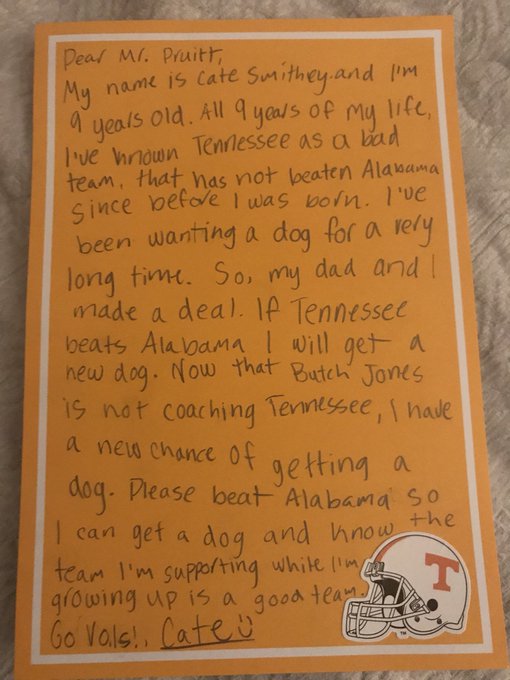 Dear Mr. Pruitt,
My name is Cate Smithey. and I'm
9 years old. All 9 years of my life,
I've known Tennessee as a bad
team, that has not beaten Alabama
since before I was born. I've
been wanting a dog for a very
long time. So, my dad and I
made a deal. If Tennessee
beats Alabama I will get a
new dog. Now that Butch Jones
is not coaching Tennessee, I have
a new chance of getting a
dog. Please beat Alabama so
I can get a dog and know the
team I'm supporting while I'm
growing up is a good team.
Go Vols!, Cate
T
TM